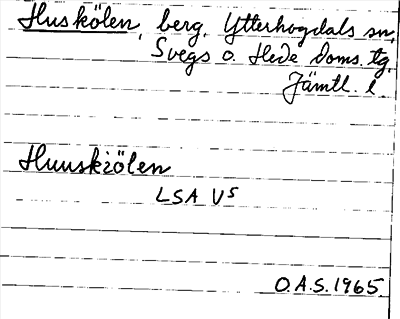 Huskölen, berg, Ytterhogdals sn,
Svegs o. Hede doms. tg,
Jämtl. l
Huuskiölen
LSA V5
O.A.S. 1965